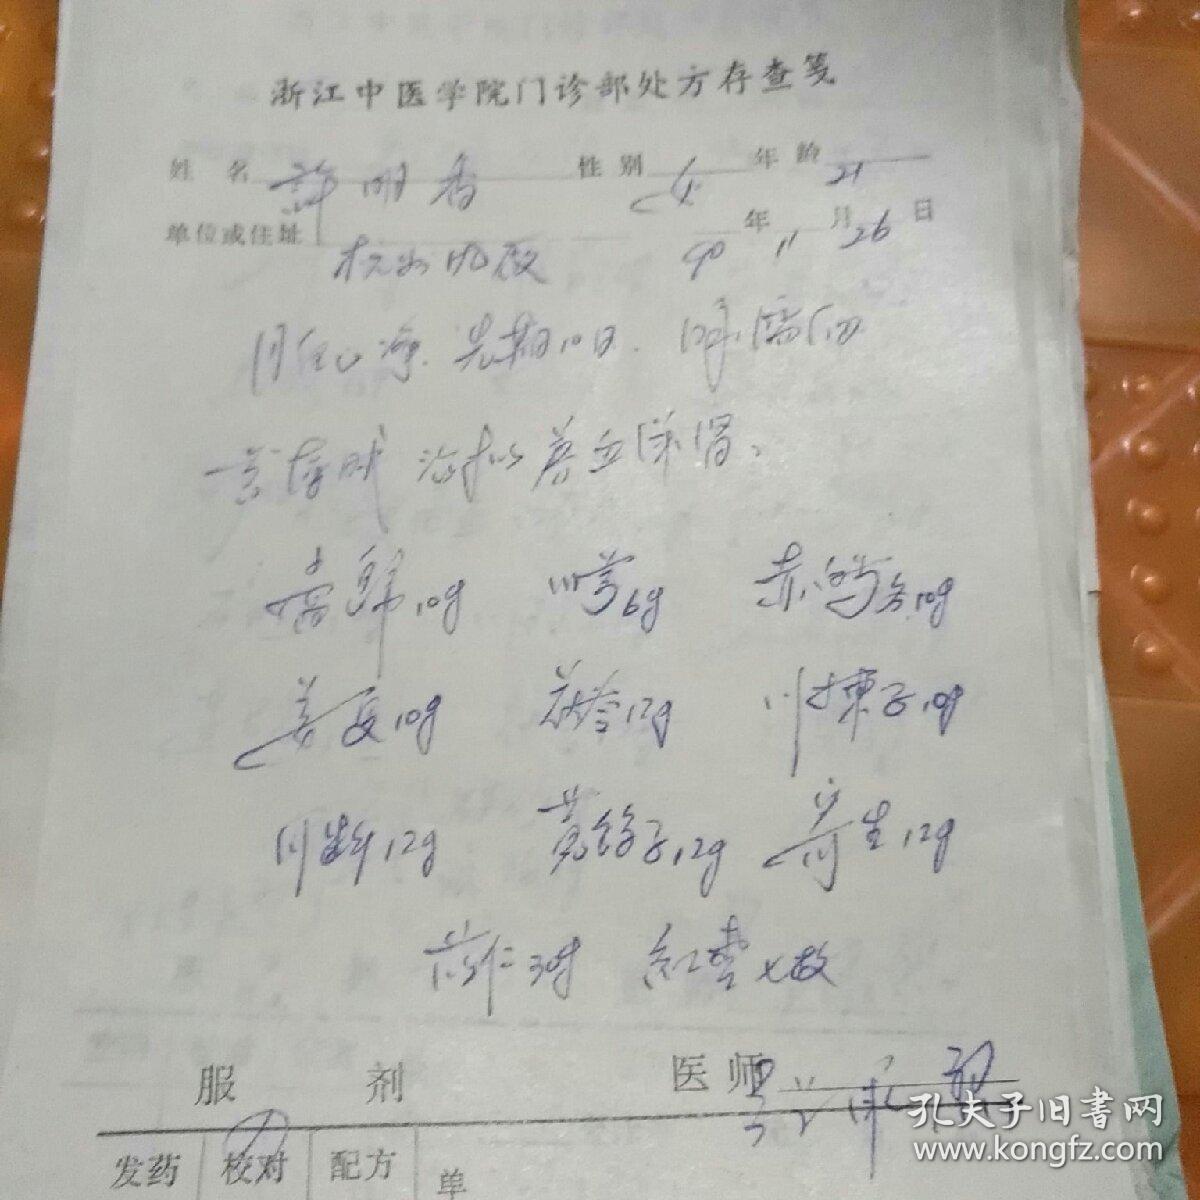 浙江中医学院门诊部处方存查笺
姓 名 許明香 性 别 女 年 龄 21
单位或住址 杭州 90 年 11 月 26 日
先期10日
治拟养血
當歸10g 川芎6g 赤白芍各10g
姜夏10g 茯苓12g 川楝子10g
川断12g 菟絲子12g 寄生12g
苡仁30g 红枣七枚
服 剂 医 师
发药 校对 配方 单
孔夫子旧书网
www.kongfz.com